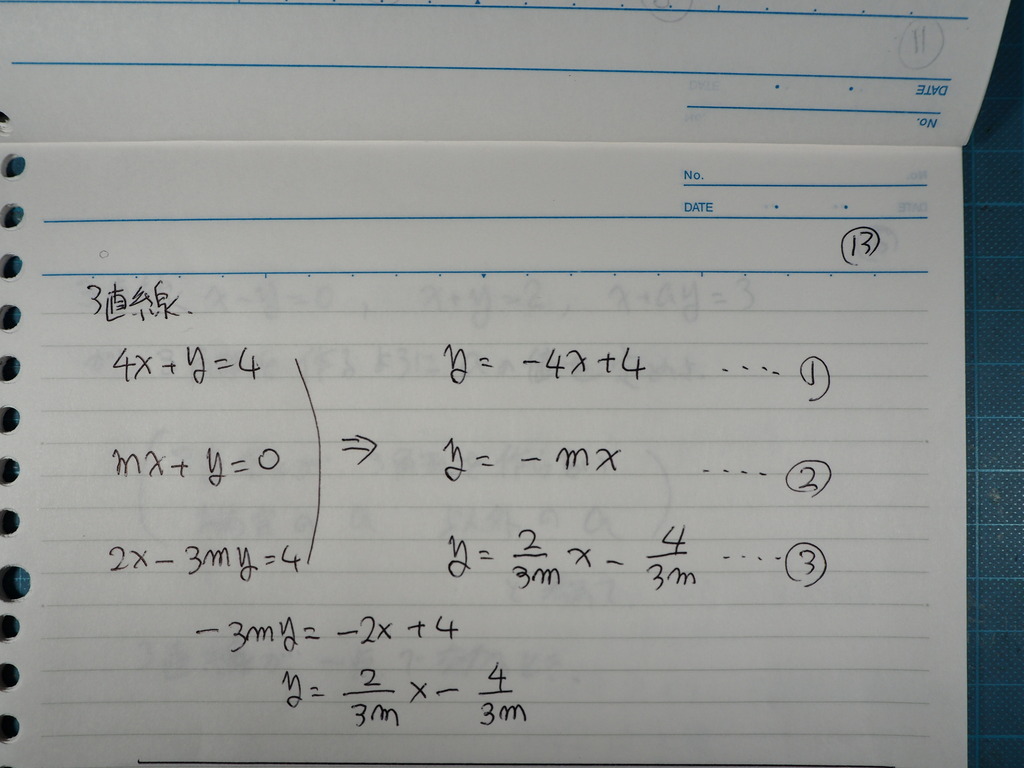 DATE
No.
No.
DATE
⑬
3直線.
4x+y=4 y=-4x+4 ‥‥ ①
mx+y=0 ⇒ y=-mx ‥‥ ②
2x-3my=4 y=\frac{2}{3m}x-\frac{4}{3m} ‥‥ ③
-3my=-2x+4
y=\frac{2}{3m}x-\frac{4}{3m}